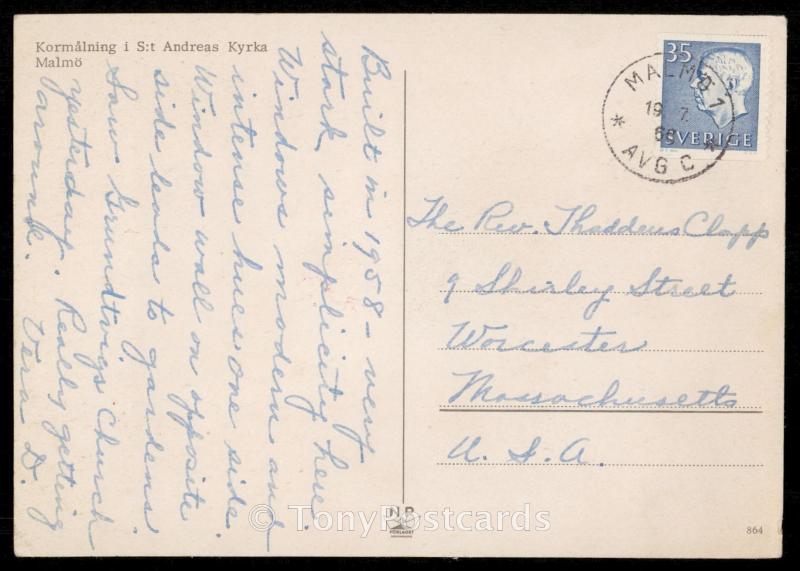 Kormålning i S:t Andreas Kyrka
Malmö
Built in 1958 - very
stark simplicity here.
Windows modern and
intense hues one side.
Window wall on opposite
side leads to gardens
Saw Grundtvigs Church
yesterday. Really getting
around. Vera D.
35
SVERIGE
MALMÖ 1
19. 7.
AVG C
The Rev. Thaddeus Clapp
9 Shirley Street
Worcester
Massachusetts
U. S. A.
N.P.
FÖRLAGET
864
© TonyPostcards